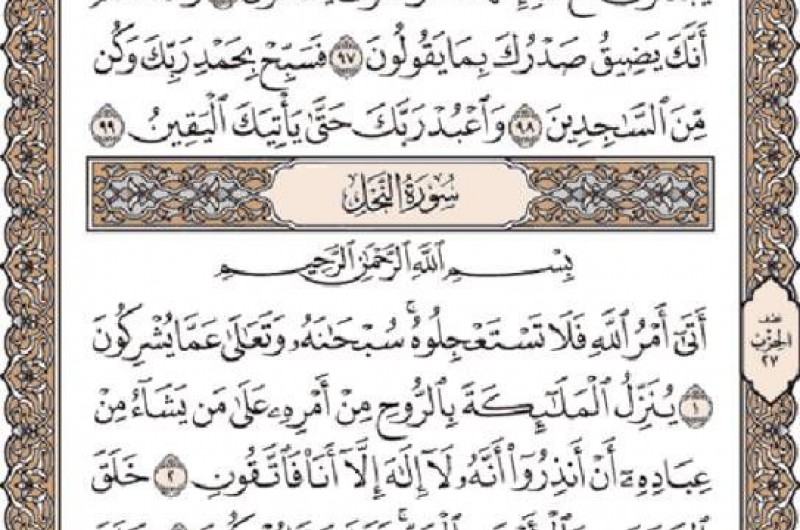 أَنَّكَ يَضِيقُ صَدْرُكَ بِمَا يَقُولُونَ ٩٧ فَسَبِّحْ بِحَمْدِ رَبِّكَ وَكُن
مِّنَ ٱلسَّٰجِدِينَ ٩٨ وَٱعْبُدْ رَبَّكَ حَتَّىٰ يَأْتِيَكَ ٱلْيَقِينُ ٩٩
سُورَةُ النَّحْلِ
بِسْمِ ٱللَّهِ ٱلرَّحْمَٰنِ ٱلرَّحِيمِ
أَتَىٰٓ أَمْرُ ٱللَّهِ فَلَا تَسْتَعْجِلُوهُۚ سُبْحَٰنَهُۥ وَتَعَٰلَىٰ عَمَّا يُشْرِكُونَ
١ يُنَزِّلُ ٱلْمَلَٰٓئِكَةَ بِٱلرُّوحِ مِنْ أَمْرِهِۦ عَلَىٰ مَن يَشَآءُ مِنْ
عِبَادِهِۦٓ أَنْ أَنذِرُوٓا۟ أَنَّهُۥ لَآ إِلَٰهَ إِلَّآ أَنَا۠ فَٱتَّقُونِ ٢ خَلَقَ
نصف
الحزب
٢٧